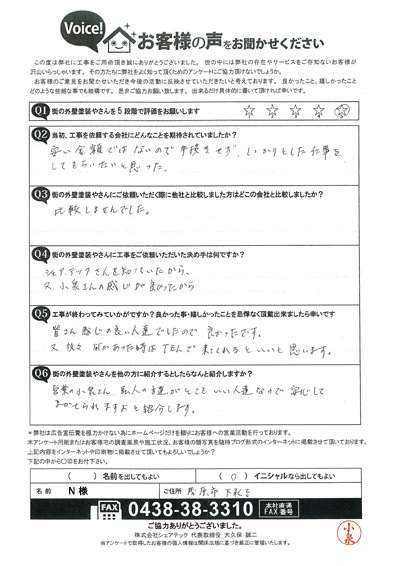 Voice! お客様の声をお聞かせください
この度は弊社に工事をご用命頂き誠にありがとうございました。世の中には弊社の存在やサービスをご存知ないお客様が
沢山いらっしゃいます。その方たちに弊社をよく知って頂くためのアンケートにご協力頂けないでしょうか。
お客様のご意見をお聞かせいただき今後の活動に反映させていただきたいと考えております。良かったこと、嬉しかったこと
どのような些細な事でも結構です。是非ご協力お願い致します。出来るだけ具体的に書いて頂ければ幸いです。
Q1 街の外壁塗装やさんを5段階で評価をお願いします ☆ ☆ ☆ ☆ ☆
Q2 当初、工事を依頼する会社にどんなことを期待されていましたか?
安い金額ではないので手抜きせず、しっかりとした仕事を
してもらいたいと思った。
Q3 街の外壁塗装やさんにご依頼いただく際に他社と比較しました方はどこの会社と比較しましたか?
比較しませんでした。
Q4 街の外壁塗装やさんに工事をご依頼いただいた決め手は何ですか?
シェアテックさんを知っていたから、
又、小泉さんの感じが良かったから
Q5 工事が終わってみていかがですか?良かった事・嬉しかったことを忌憚なく頂戴出来ましたら幸いです
皆さん感じの良い人達でしたので良かったです。
又 後々 何かあった時はTELで来てくれるといいと思います。
Q6 街の外壁塗装やさんを他の方に紹介するとしたらなんと紹介しますか?
営業の小泉さん、職人の方達がとてもいい人達なので安心して
まかせられますよと紹介します。
*弊社は広告宣伝費を極力かけない為にホームページだけを頼りにお客様への営業活動を行っております。
本アンケート用紙またはお客様宅の調査風景や施工状況、お客様の顔写真を随時ブログ形式のインターネットに掲載させて頂いております。
上記内容をインターネットや印刷物に掲載させて頂いてもよろしいでしょうか?
下記の中から○印をお付下さい。
( ) 名前を出してもよい ( ○ ) イニシャルなら出してもよい
名前 N 様 ご住所
FAX 0438-38-3310 本社直通 FAX番号
ご協力ありがとうございました。
株式会社シェアテック 代表取締役 大久保 誠二
当アンケートで取得したお客様の個人情報は関係法規に基づき厳正に管理いたします。
小泉